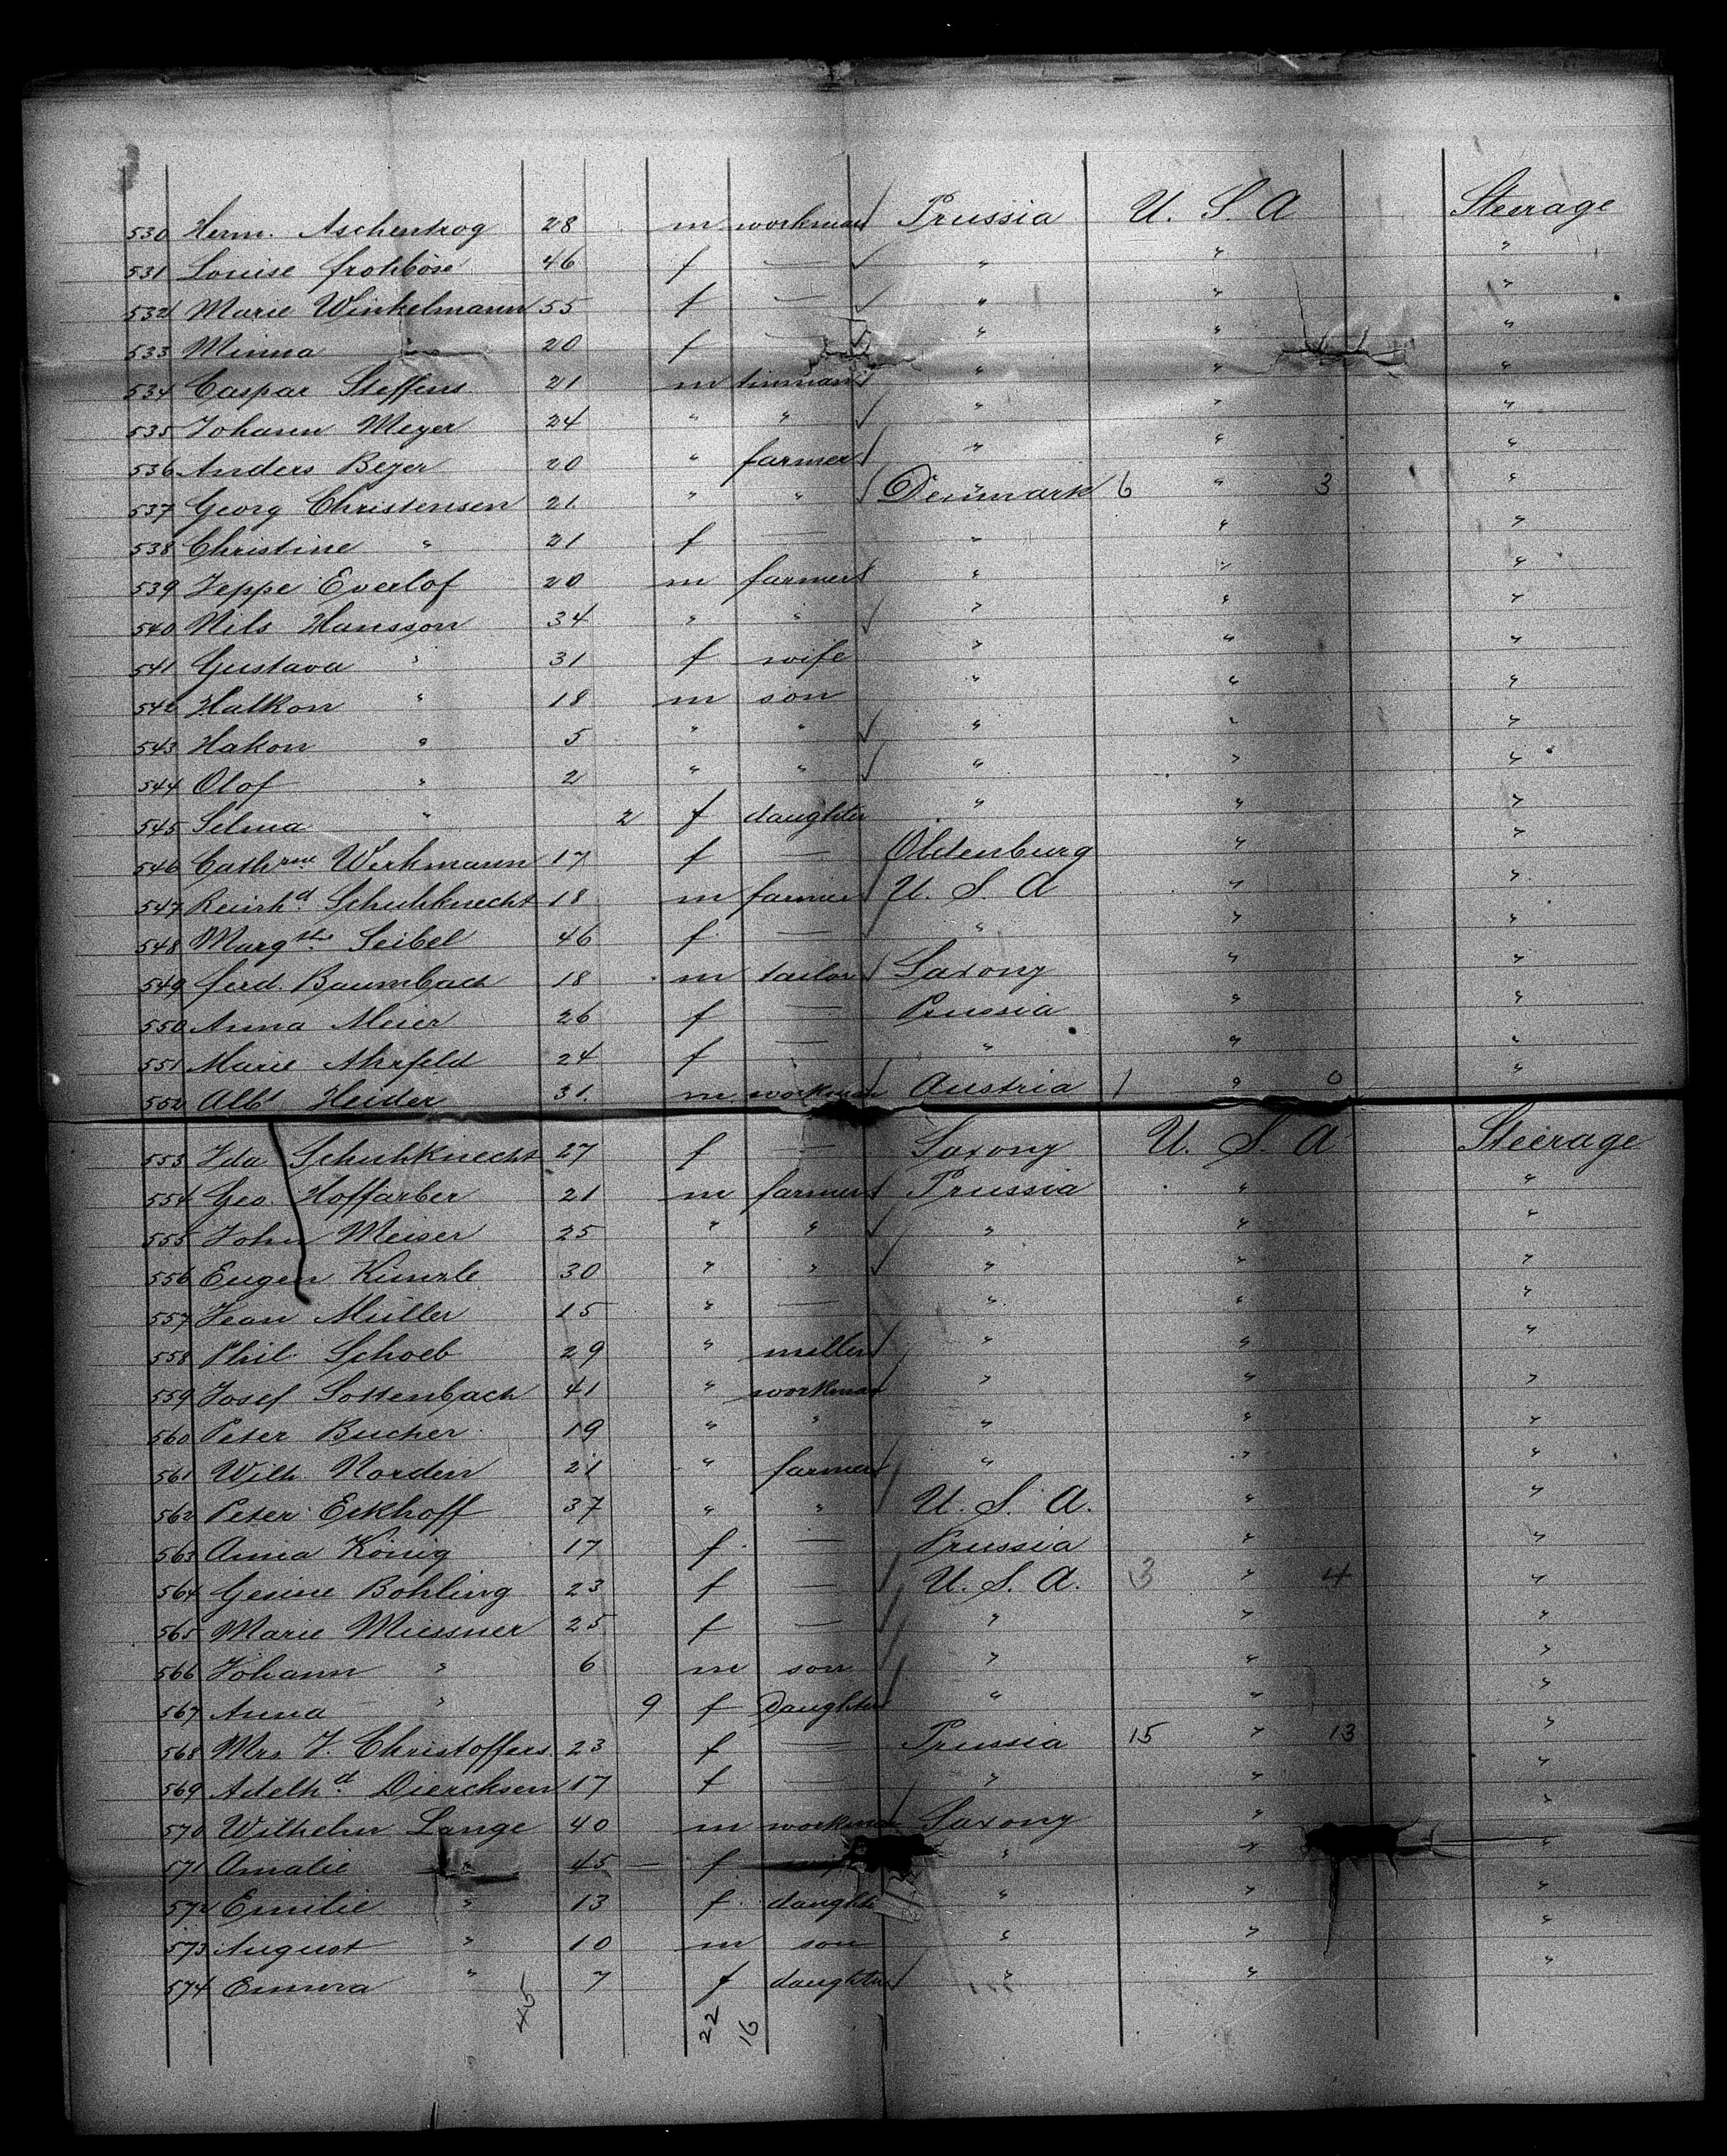 530 Herm. Aschentrog 28 m workman Prussia U. S A Steerage
531 Louise Frohböse 46 f — " " "
532 Marie Winkelmann 55 f — " " "
533 Minna " 20 f — " " "
534 Caspar Steffens 21 m tinman " " "
535 Johann Meyer 24 " " " " "
536 Anders Beyer 20 " farmer " " "
537 Georg Christensen 21 " " Denmark 6 " 3 "
538 Christine " 21 f — " " "
539 Jeppe Everlof 20 m farmer " " "
540 Nils Hansson 34 " " " " "
541 Gustava " 31 f wife " " "
542 Halkon " 18 m son " " "
543 Hakon " 5 " " " " "
544 Olof " 2 " " " " "
545 Selma " 2 f daughter " " "
546 Cathrine Werkmann 17 f — Oldenburg " "
547 Reinhd. Schuhknecht 18 m farmer U. S. A " "
548 Margthe Seibel 46 f — " " "
549 Ferd. Baumbach 18 m tailor Saxony " "
550 Anna Meier 26 f — Prussia " "
551 Marie Ahrfeld 24 f — " " "
552 Albt Heider 31 m workman Austria 1 " 0 "
553 Ida Schuhknecht 27 f — Saxony U. S. A Steerage
554 Geo. Hoffarber 21 m farmer Prussia " "
555 John Meiser 25 " " " " "
556 Eugen Künzle 30 " " " " "
557 Jean Müller 15 " — " " "
558 Phil. Schoeb 29 " miller " " "
559 Josef Sottenbach 41 " workman " " "
560 Peter Bucher 19 " " " " "
561 Wilh Norden 21 " farmer " " "
562 Peter Eckhoff 37 " " U. S. A. " "
563 Anna König 17 f — Prussia " "
564 Gesine Bohling 23 f — U. S. A. 3 " 4 "
565 Marie Miessner 25 f — " " "
566 Johann " 6 m son " " "
567 Anna " 9 f Daughter " " "
568 Mrs J. Christoffers 23 f — Prussia 15 " 13 "
569 Adelhd. Diercksen 17 f — " " "
570 Wilhelm Lange 40 m workman Saxony " "
571 Amalie " 45 — f wife " " "
572 Emilie " 13 f daughter " " "
573 August " 10 m son " " "
574 Emma " 7 f daughter " " "
45 22 16